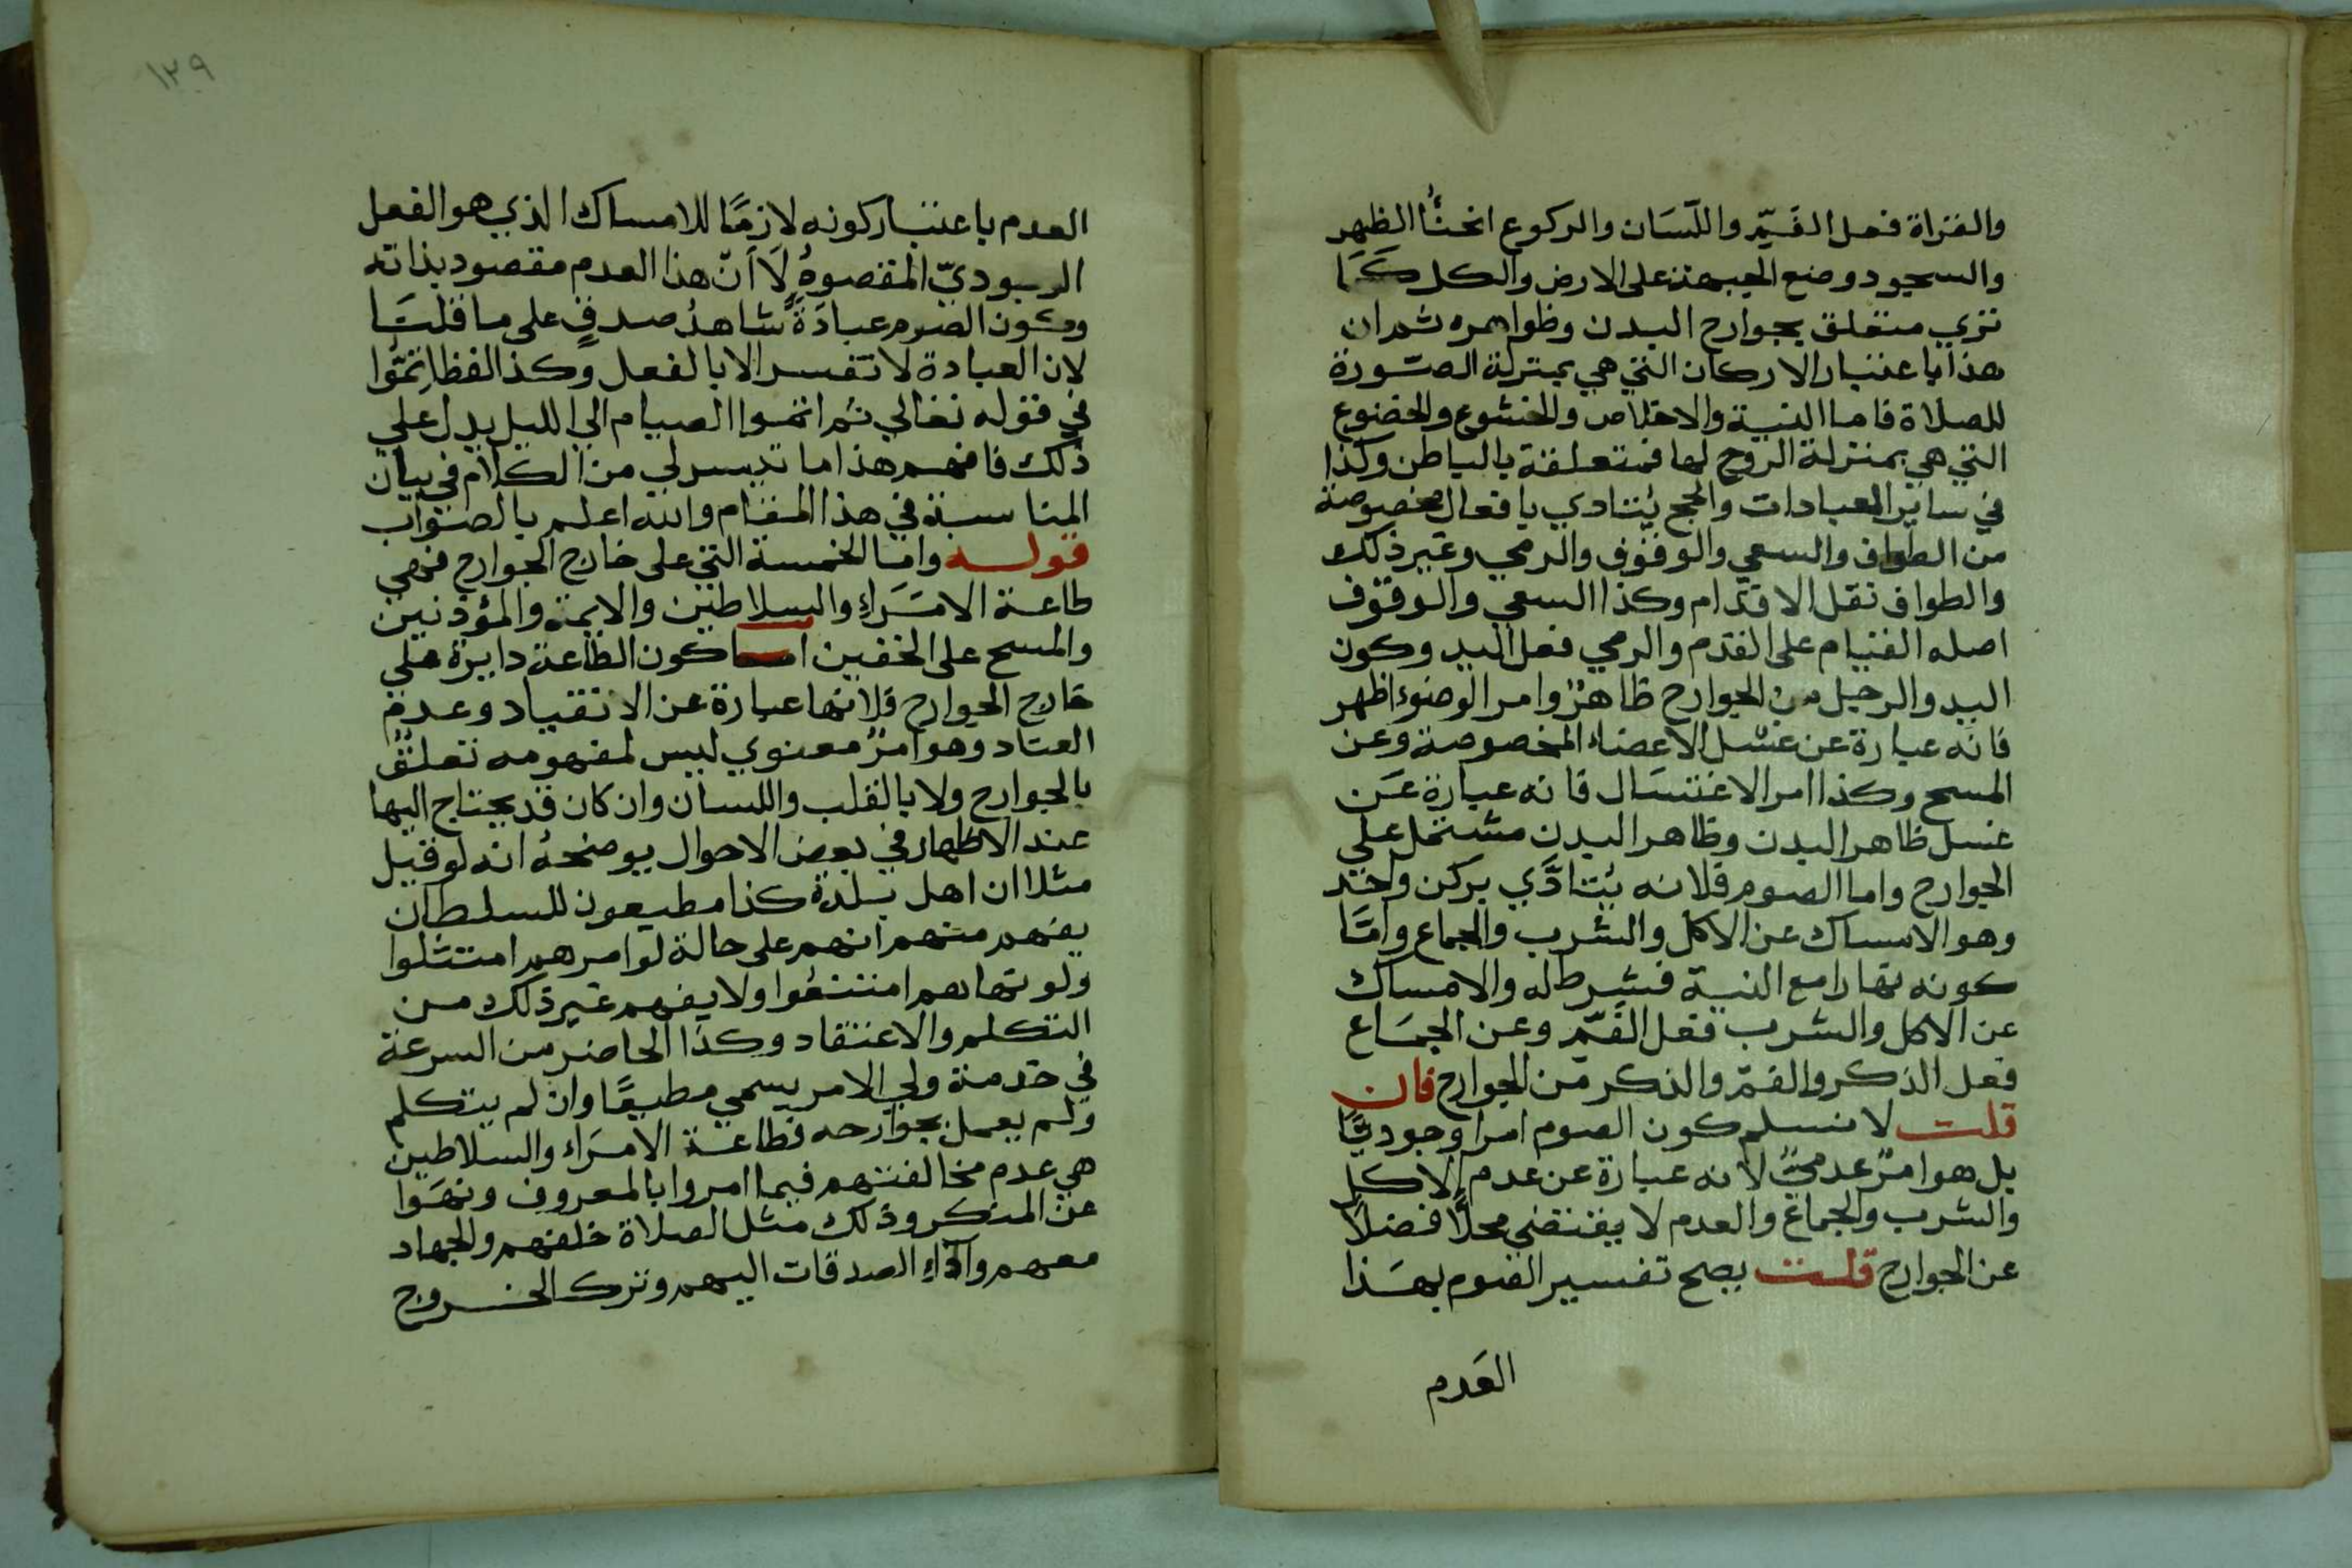 والقراة فعل الفَمِّ واللّسَان والركوع انحنَأُ الظهر
والسجود وضع الجبهة على الارض والكل كمَا
تري متعلق بجوارح البدن وظواهره ثم ان
هذا باعتبار الاركان التي هي بمنزلة الصّورة
للصلاة فاما النية والاخلاص والخشوع والخضوع
التي هي بمنزلة الروح لها فمتعلقة بالباطن وكذا
في ساير العبادات والحج يُتادي بافعال مخصوصة
من الطواف والسعي والوقوف والرمي وغير ذلك
والطواف نقل الاقدام وكذا السعي والوقوف
اصله القيام على القدم والرمي فعل اليد وكون
اليد والرجل من الجوارح ظاهرٌ وامر الوضوء اظهر
فانه عبارة عن غسْل الاعضاء المخصوصة وعن
المسح وكذا امر الاغتسَال فانه عبارة عَن
غسل ظاهر البدن وظاهر البدن مشتمل علي
الجوارح واما الصوم فلانه يُتادَّي بركن واحد
وهو الامساك عن الاكل والشرب والجماع وامَّا
كونه نهارا مع النية فشرط له والامساك
عن الاكل والشرب فعل الفَمّ وعن الجمَاع
فعل الذكر والفمّ والذكر من الجوارح فان
قلت لا نسلم كون الصوم امرا وجوديًّا
بل هو امرٌ عدميٌّ لانه عبارة عن عدم الاكل
والشرب والجماع والعدم لا يقتضي محلًّا فضلا
عن الجوارح قلت يصح تفسير الصوم بهَذا
العَدم
١٢٩
العدم باعتبار كونه لازمًا للامساك الذي هو الفعل
المقصوهُ لَا اَنّ هذا العدم مقصود بذاته
وكون الصوم عبادَةً شاهدُ صدقٍ على ما قلتَا
لان العبادة لا تفسر الا بالفعل وكذا لفظ اتمّوا
في قوله تعالي ثم اتموا الصيام الي الليل يدل علي
ذلك فافهم هذا ما تيسر لي من الكلام في بيان
المناسبة في هذا المقام والله اعلم بالصواب
قوله واما الخمسة التي على خارج الجوارح فهي
طاعة الامَرَاءِ والسلاطين والايمة والمؤذنين
والمسح على الخفين اما كون الطاعة دايرة علي
خارج الجوارح فلانها عبارة عن الانقياد وعدم
العناد وهو امرٌ معنوي ليس لمفهومه تعلقٌ
بالجوارح ولا بالقلب واللسان وان كان قد يحتاج اليها
عند الاظهار في بعض الاحوال يوضحهُ انه لو قيل
مثلا ان اهل بلدة كذا مطيعون للسلطان
يفهم منهم انهم على حالة لو امرهم امتثلوا
ولو نهاهم امتنعُوا ولا يفهم غير ذلك من
التكلم والاعتقاد وكذا الحاضر من السرعة
في خدمة ولي الامر يسمي مطيعًا وان لم يتكلم
ولم يعمل بجوارحه فطاعة الامرَاء والسلاطين
هي عدم مخالفتهم فيما امروا بالمعروف ونهَوا
عن المنكر وذلك مثل الصلاة خلفهم والجهاد
معهم واَداءِ الصدقات اليهم وترك الخروج